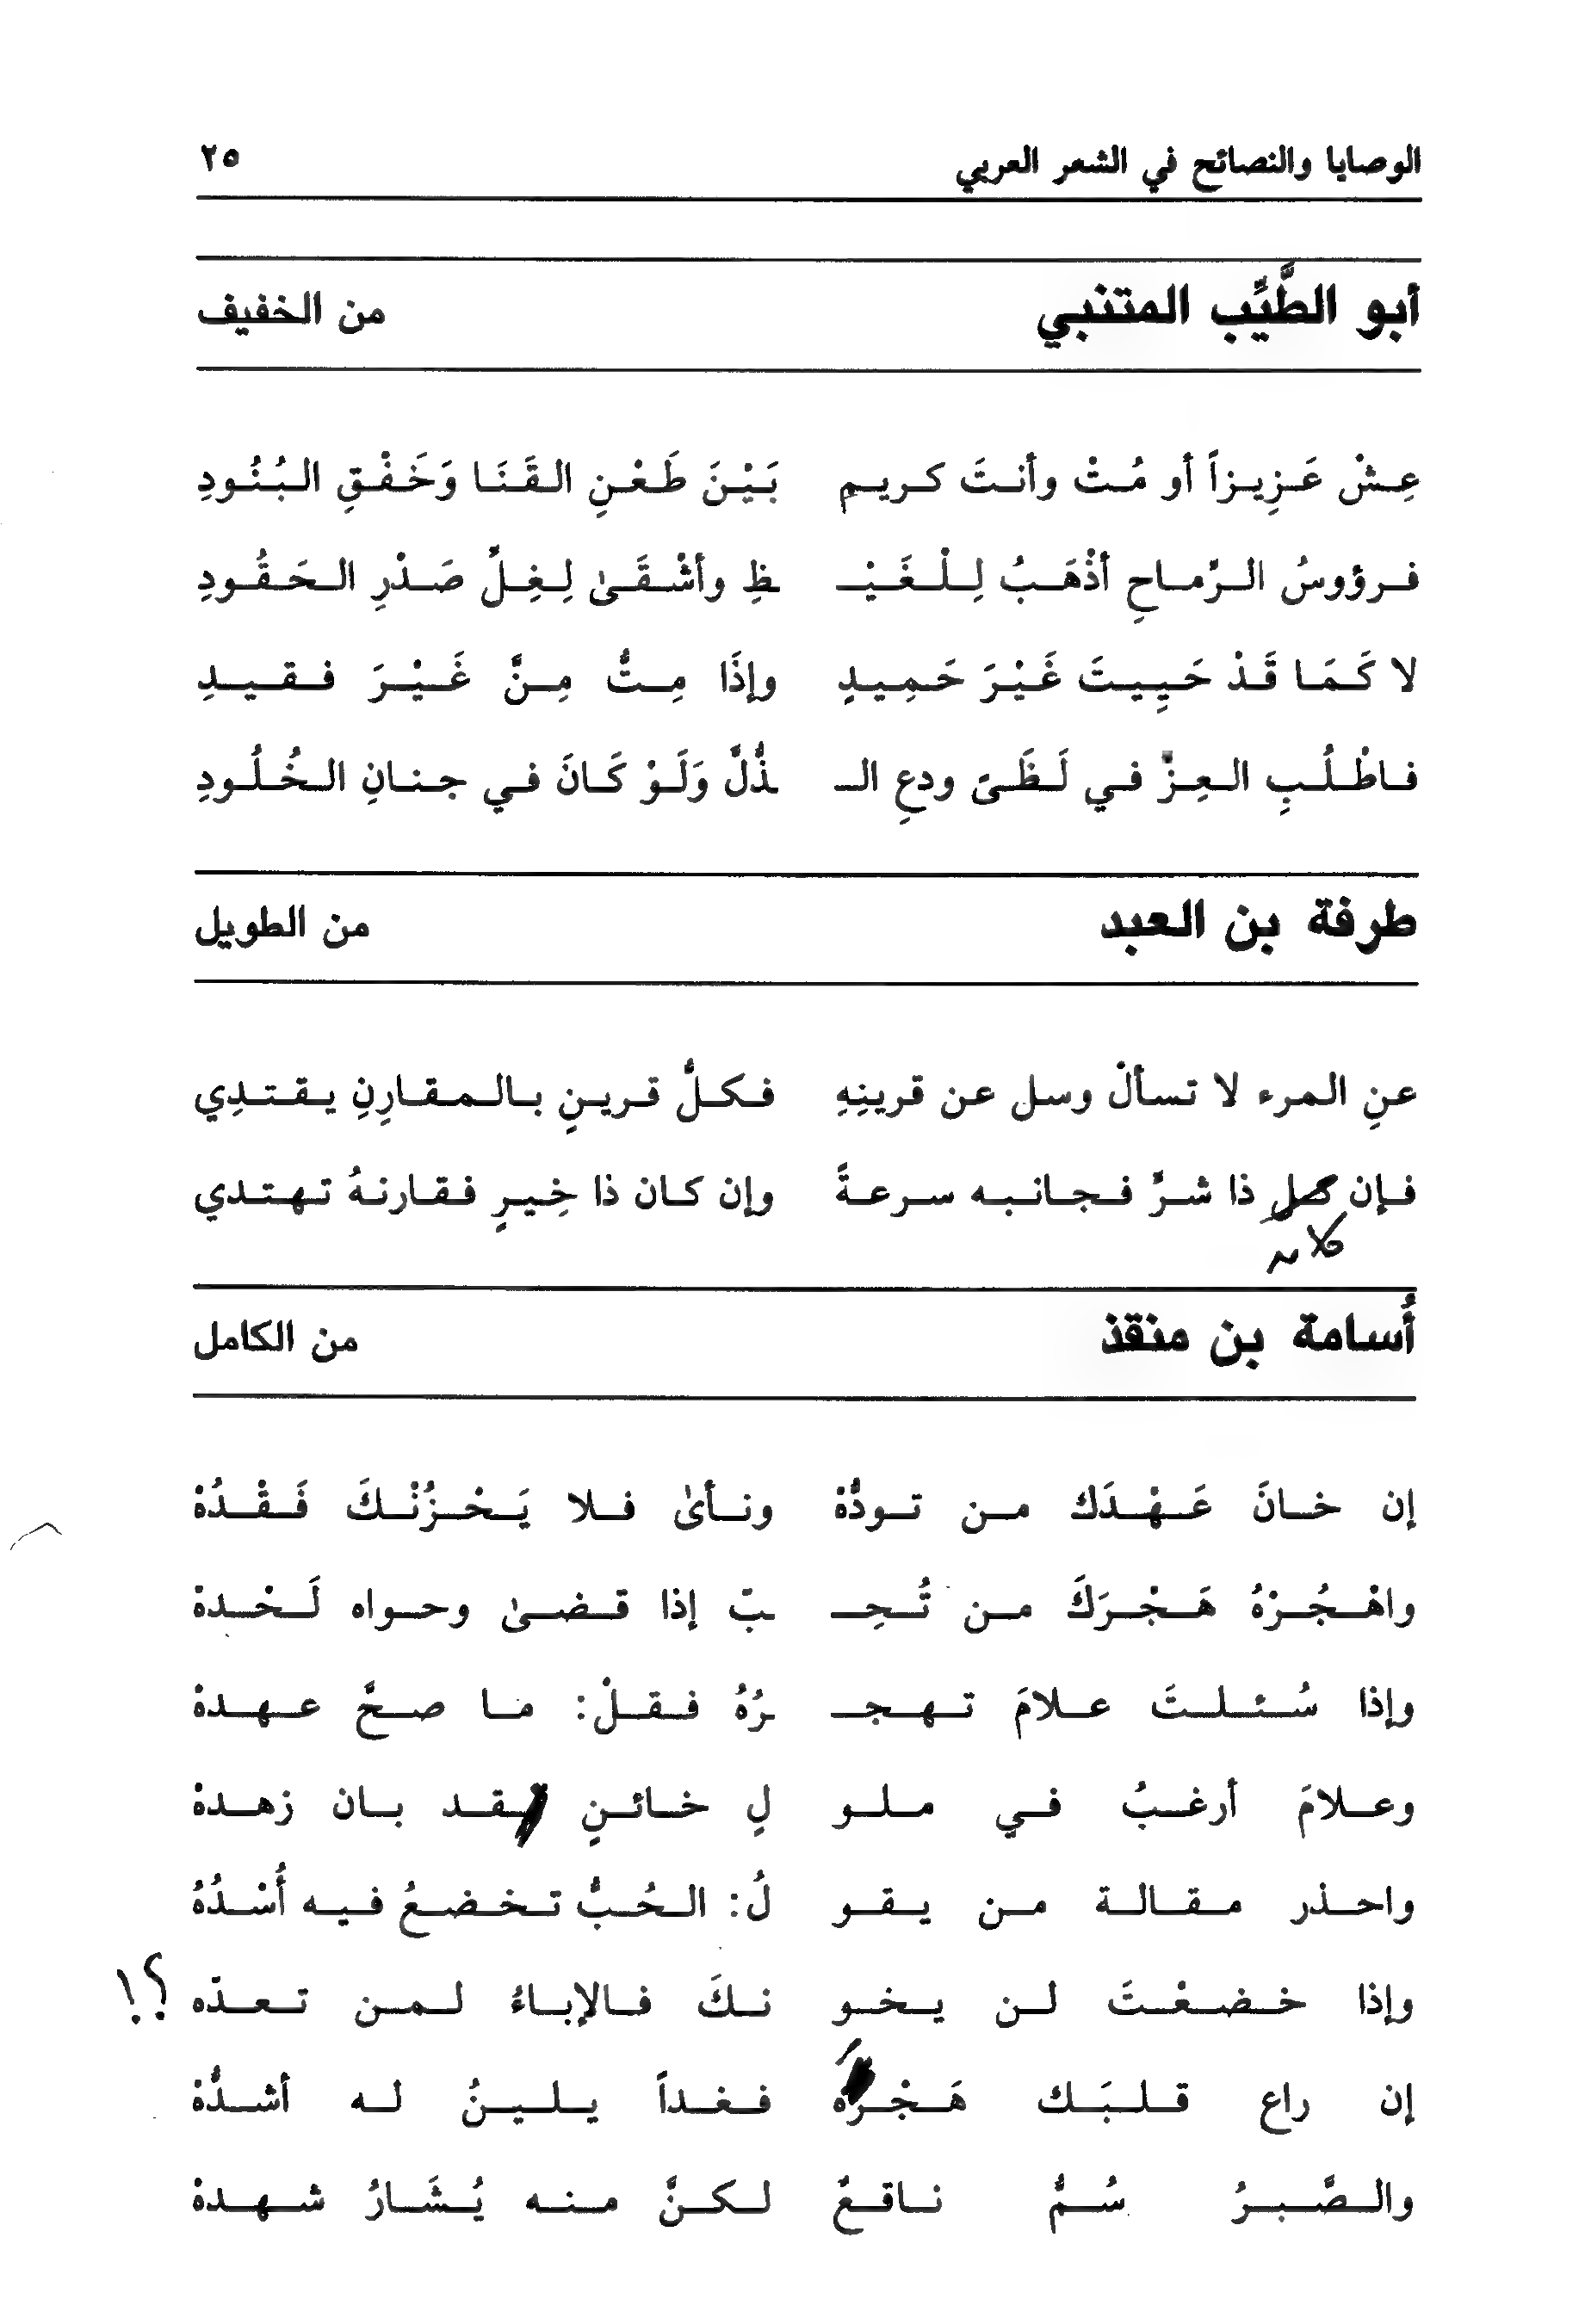 الوصايا والنصائح في الشعر العربي ٢٥
أبو الطَّيِّب المتنبي من الخفيف
عِشْ عَزِيزاً أو مُتْ وأنتَ كريم بَيْنَ طَعْنِ القَنَا وَخَفْقِ البُنُودِ
فرؤوسُ الرِّماحِ أذْهَبُ لِلْغَيْـ ـظِ وأشْفَىٰ لِغِلِّ صَدْرِ الحَقُودِ
لا كَمَا قَدْ حَيِيتَ غَيْرَ حَمِيدٍ وإذَا مِتُّ مِنَّ غَيْرَ فقيدِ
فاطْلُبِ العِزَّ في لَظَىً ودعِ الـ ـذُّلَّ وَلَوْ كَانَ في جنانِ الخُلُودِ
طرفة بن العبد من الطويل
عنِ المرء لا تسألْ وسل عن قرينِهِ فكلُّ قرينٍ بالمقارِنِ يقتدِي
فإن كل ذا شرٍّ فجانبه سرعةً وإن كان ذا خِيرٍ فقارنهُ تهتدي
كان
أُسامة بن منقذ من الكامل
إن خانَ عَهْدَك من تودُّهْ ونأىٰ فلا يَحْزُنْكَ فَقْدُهْ
واهْجُرْهُ هَجْرَكَ من تُحِـ ـبّ إذا قضىٰ وحواه لَحْدهْ
وإذا سُئلتَ علامَ تهجـ ـرُهُ فقلْ: ما صحَّ عهدهْ
وعلامَ أرغبُ في ملو لِ خائنٍ قد بان زهدهْ
واحذر مقالة من يقو لُ: الحُبُّ تخضعُ فيه أُسْدُهُ
وإذا خضعْتَ لن يخو نكَ فالإباءُ لمن تعدّه ؟!
إن راع قلبَك هَجْرَهُ فغداً يلينُ له أشدُّهْ
والصَّبرُ سُمٌّ ناقعٌ لكنَّ منه يُشَارُ شهدهْ